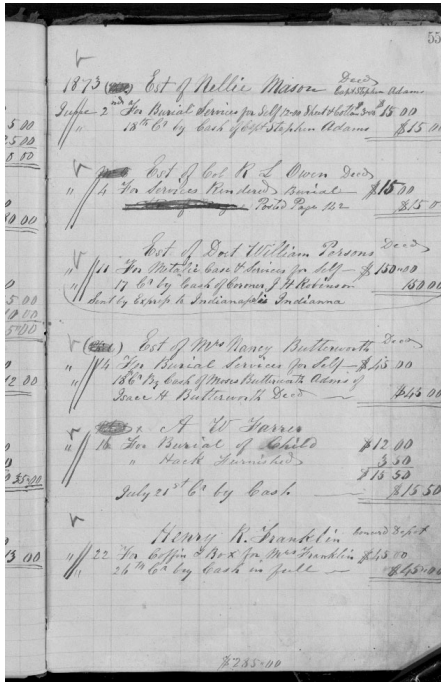 55
1873 Est of Nellie Mason Decd
Capt Stephen Adams
June 2nd For Burial Services for Self 12.00 Sheet & Cotton 3.00 $15.00
" 18th Cr by Cash of Capt Stephen Adams $15.00
Est of Col R S Owen Decd
" 4 For Services Rendered Burial $15.00
Posted Page 142 $15.0
Est of Doct William Persons Decd
" 11 For Metalic Case & Services for Self $150.00
17 Cr by Cash of Corner J H Robinson 150.00
Sent by Express to Indianapolis Indianna
Est of Mrs Nancy Butterworth Decd
" 14 For Burial Services for Self $45.00
18 Cr By Cash of Moses Butterworth Adms of
Isaac H Butterworth Decd $45.00
A W Farrer
" 16 For Burial of Child $12.00
" Hack Furnished 3.50
$15.50
July 21st Cr by Cash $15.50
Henry R. Franklin Depot
" 22 For Coffin & Box for Mrs Franklin $45.00
26th Cr by Cash in full $45.00
$285.00
5.00
25.00
0.00
80.00
5.00
5.00
12.00
35.00
13 00